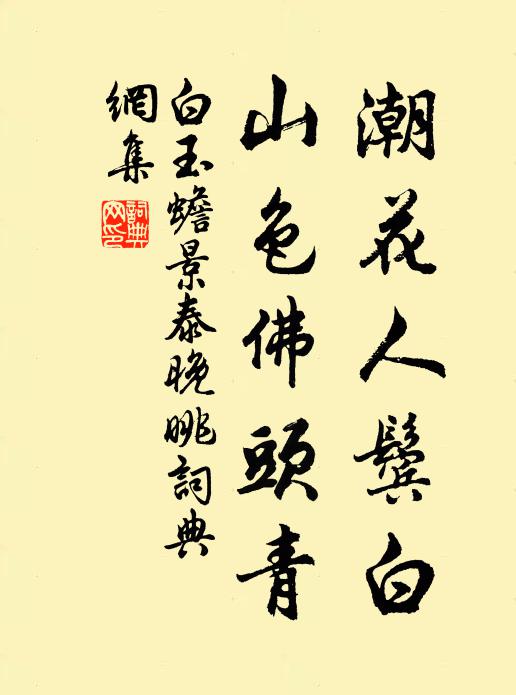 潮花人鬢白
山色佛頭青
白玉蟾景泰晚眺詞典
網集
詞典網印